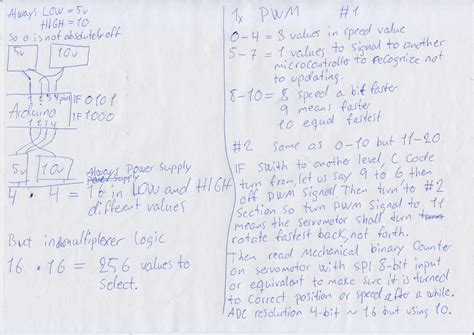 Always LOW = 5v
HIGH = 10
So 0 is not absolutely off
5v 10v
Arduino
1 2 3 4 pin
IF 0101
IF 1000
1 2 3 4
5v 10v
Always Power Supply
Power Supply
4 · 4 = 16 in LOW and HIGH
different values
But in multiplexer logic
16 · 16 = 256 values to
select.
1x PWM #1
0-4 = 3 values in speed value
5-7 = 1 values to signal to another
microcontroller to recognize not
to updating.
8-10 = 8 speed a bit faster
9 means faster
10 equal fastest
#2 Same as 0-10 but 11-20.
IF swith to another level, C Code
turn from, let us say 9 to 6, then
off PWM Signal! Then turn to #2
Section so turn PWM Signal to, 11
means the servomotor shall turn
rotate fastest back, not forth.
Then read Mechanical binary Counter
on servomotor with SPI 8-bit input
or equivalent to make sure it is turned
to Correct position or speed after a while.
ADC resolution 4-bit ~ 16 but using 10.